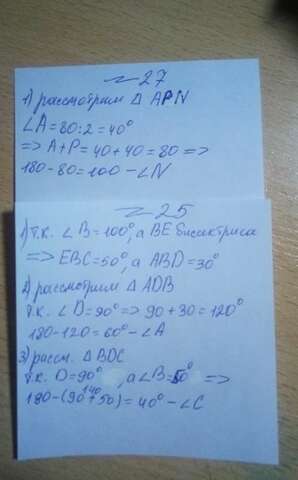 27
1) рассмотрим Δ APN
∠A = 80:2 = 40°
=> A+P = 40+40 = 80 =>
180-80 = 100 - ∠N
25
1) т.к. ∠B = 100°, а BE биссектриса
=> EBC = 50°, а ABD = 30°
2) рассмотрим Δ ADB
т.к. ∠D = 90° => 90+30 = 120°
180-120 = 60° - ∠A
3) рассм. Δ BDC
т.к. D = 90°, а ∠B = 50° =>
140
180-(90+50) = 40° - ∠C